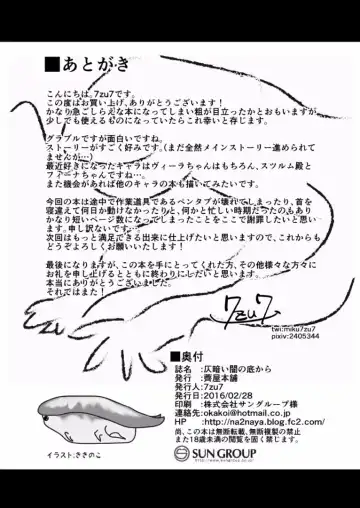 ■あとがき
こんにちは。7zu7です。
この度はお買い上げ、ありがとうございます！
かなり急ごしらえな本になってしまい粗が目立ったかとおもいますが、
少しでも使えるものになっていたらこれ幸いと存じます。
グラブルですが面白いですね。
ストーリーがすごく好みです。（まだ全然メインストーリー進められて
ませんが…）
最近好きになったキャラはヴィーラちゃんはもちろん、スツルム殿と
フィーナちゃんですね…
また機会があれば他のキャラの本も描いてみたいです。
今回の本は途中で作業道具であるペンタブが壊れてしまったり、首を
寝違えて何日か動けなかったりと、何かと忙しい時期だったのもあり
かなり短いページ数になってしまったことをここで謝罪したいと思い
ます。申し訳ないです…
次回はもっと満足できる出来に仕上げたいと思いますので、これからも
どうぞよろしくお願いいたします！
最後になりますが、この本を手にとってくれた方、その他様々な方々に
お礼を申し上げるとともに終わりにしたいと思います。
本当にありがとうございました。
それではまた！
7zu7
twi:miku7zu7
pixiv:2405344
■奥付
誌名　：仄暗い闇の底から
発行　：茜屋本舗
発行人：7zu7
発行日：2016/02/28
印刷　：株式会社サングループ様
連絡先：okakoi@hotmail.co.jp
HP　　：http://na2naya.blog.fc2.com/
尚、この本は無断転載、無断複製の禁止
また18歳未満の閲覧を固く禁じます。
イラスト：ききのこ
SUN GROUP